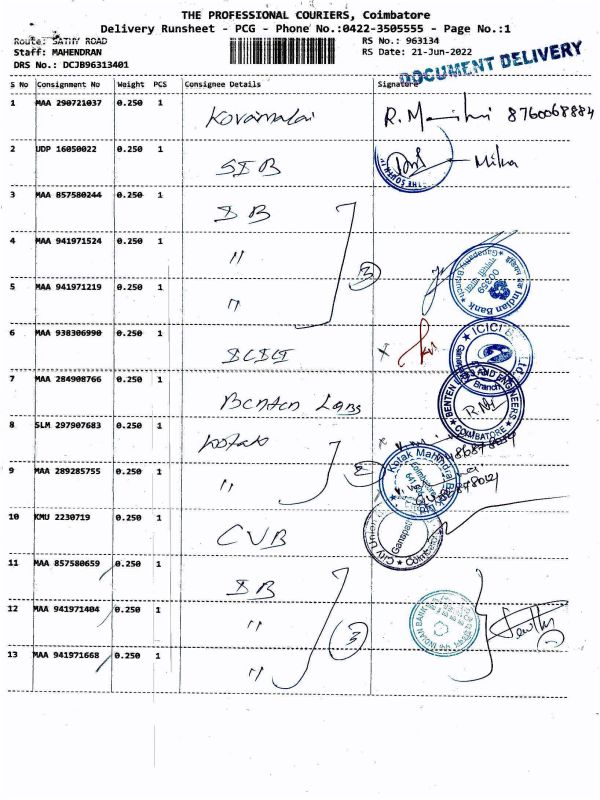 THE PROFESSIONAL COURIERS, Coimbatore
Delivery Runsheet - PCG - Phone No.:0422-3505555 - Page No.:1
Route: SATHY ROAD
RS No.: 963134
Staff: MAHENDRAN
RS Date: 21-Jun-2022
DRS No.: DCJB96313401
DOCUMENT DELIVERY
S No Consignment No Weight PCS Consignee Details Signature
1 MAA 290721037 0.250 1 Kovaimalai R. M 8760068884
2 UDP 16050022 0.250 1 SIB THE SOUTH
3 MAA 857580244 0.250 1 IB
4 MAA 941971524 0.250 1 " 3
5 MAA 941971219 0.250 1 " Indian Bank 00359
6 MAA 938306990 0.250 1 ICICI ICICI Ltd. Branch
7 MAA 284908766 0.250 1 Benten Labs BENTEN LABS AND ENGINEERS COIMBATORE
8 SLM 297907683 0.250 1 Kotak Kotak Mahindra
9 MAA 289285755 0.250 1 " 2
10 KMU 2230719 0.250 1 CUB City Union Ganapathy Coimbatore
11 MAA 857580659 0.250 1 IB
12 MAA 941971404 0.250 1 " 3 INDIAN BANK
13 MAA 941971668 0.250 1 "